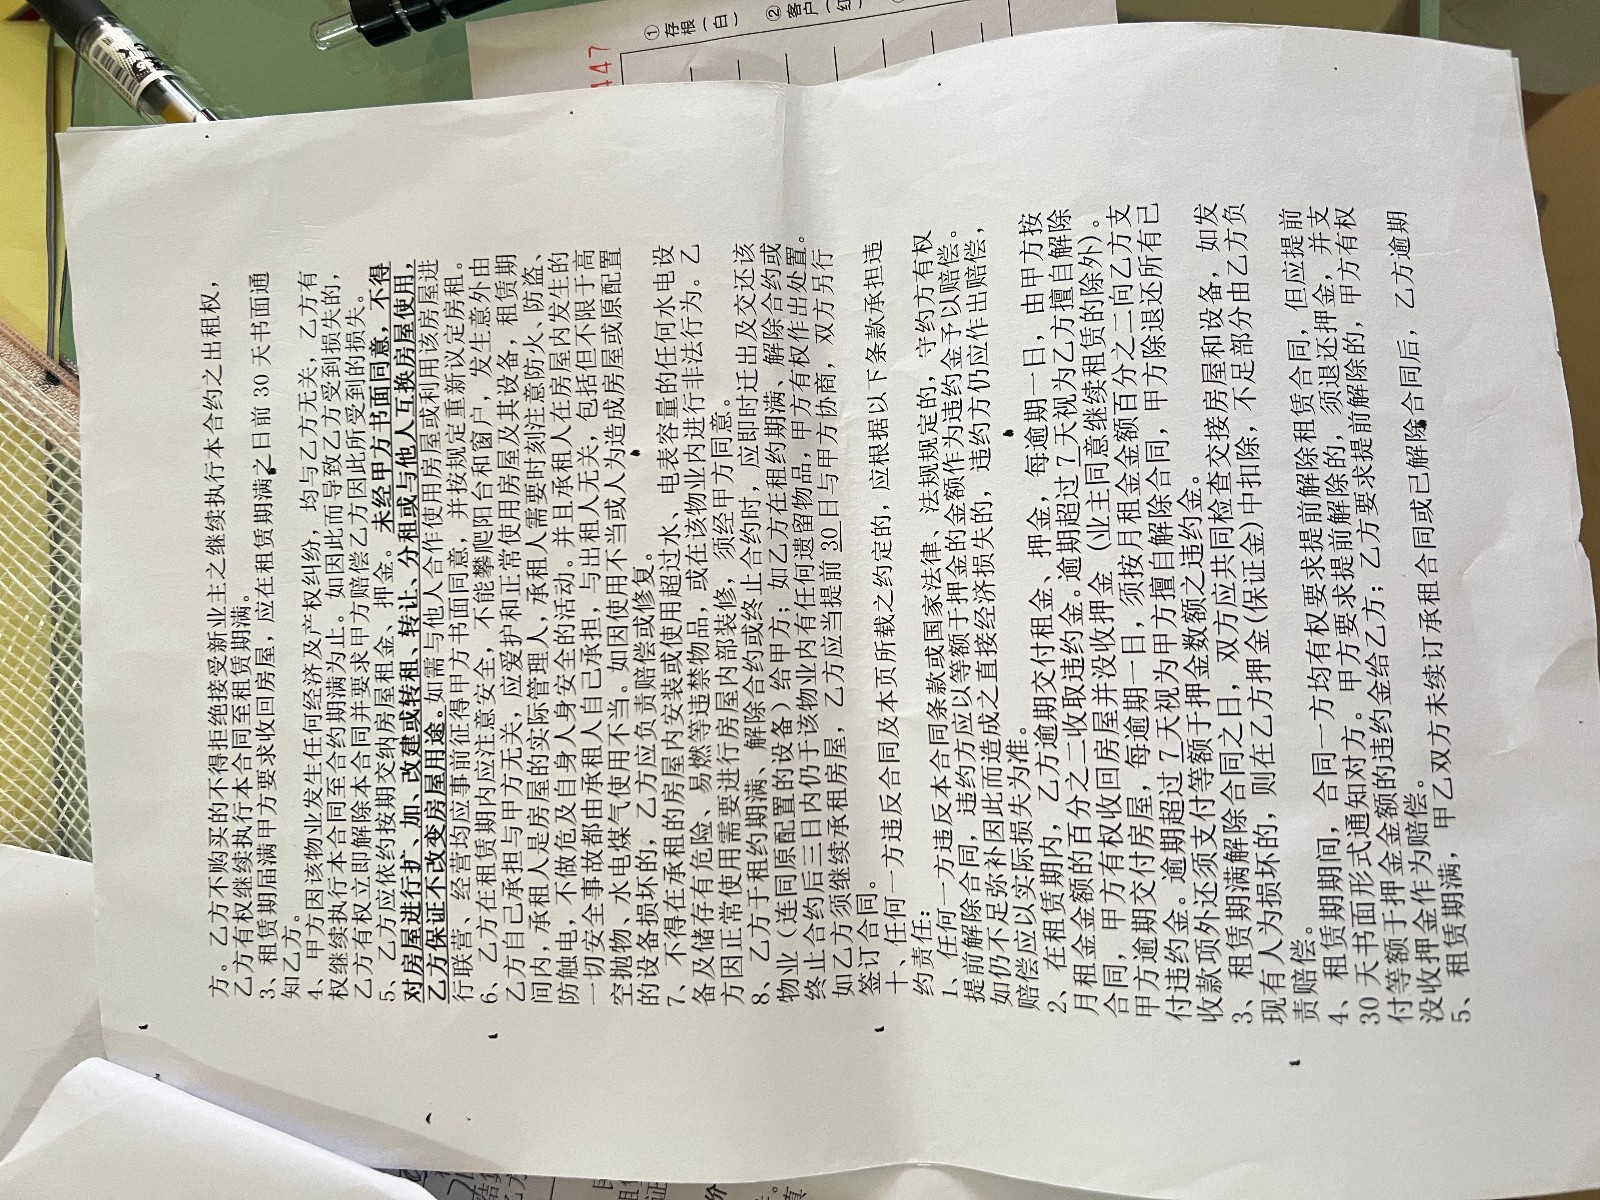 方。乙方不购买的不得拒绝接受新业主之继续执行本合约之出租权，
乙方有权继续执行本合同至租赁期满。
3、租赁期届满甲方要求收回房屋，应在租赁期满之日前 30 天书面通
知乙方。
4、甲方因该物业发生任何经济及产权纠纷，均与乙方无关，乙方有
权继续执行本合同至合约期满为止。如因此而导致乙方受到损失的，
乙方有权立即解除本合同并要求甲方赔偿乙方因此所受到的损失。
5、乙方应依约按期交纳房屋租金、押金。未经甲方书面同意，不得
对房屋进行扩、加、改建或转租、转让、分租或与他人互换房屋使用，
乙方保证不改变房屋用途。如需与他人合作使用房屋或利用该房屋进
行联营、经营均应事前征得甲方书面同意，并按规定重新议定房租。
6、乙方在租赁期内应注意安全，不能攀爬阳台和窗户，发生意外由
乙方自己承担与甲方无关，应爱护和正常使用房屋及其设备，租赁期
间内，承租人是房屋的实际管理人，承租人需要时刻注意防火、防盗、
防触电，不做危及自身人身安全的活动。并且承租人在房屋内发生的
一切安全事故都由承租人自己承担，与出租人无关，包括但不限于高
空抛物、水电煤气使用不当。如因使用不当或人为造成房屋或原配置
的设备损坏的，乙方应负责赔偿或修复。
7、不得在承租的房屋内安装或使用超过水、电表容量的任何水电设
备及储存有危险、易燃等违禁物品，或在该物业内进行非法行为。乙
方因正常使用需要进行房屋内部装修，须经甲方同意。
8、乙方于租约期满、解除合约或终止合约时，应即时迁出及交还该
物业（连同原配置的设备）给甲方；如乙方在租约期满、解除合约或
终止合约后三日内仍于该物业内有任何遗留物品，甲方有权作出处置。
如乙方须继续承租房屋，乙方应当提前 30 日与甲方协商，双方另行
签订合同。
十、任何一方违反合同及本页所载之约定的，应根据以下条款承担违
约责任：
1、任何一方违反本合同条款或国家法律、法规规定的，守约方有权
提前解除合同，违约方应以等额于押金的金额作为违约金予以赔偿。
如仍不足弥补因此而造成之直接经济损失的，违约方仍应作出赔偿，
赔偿应以实际损失为准。
2、在租赁期内，乙方逾期交付租金、押金，每逾期一日，由甲方按
月租金金额的百分之二收取违约金。逾期超过 7 天视为乙方擅自解除
合同，甲方有权收回房屋并没收押金（业主同意继续租赁的除外）。
甲方逾期交付房屋，每逾期一日，须按月租金金额百分之二向乙方支
付违约金。逾期超过 7 天视为甲方擅自解除合同，甲方除退还所有已
收款项外还须支付等额于押金数额之违约金。
3、租赁期满解除合同之日，双方应共同检查交接房屋和设备，如发
现有人为损坏的，则在乙方押金(保证金)中扣除，不足部分由乙方负
责赔偿。
4、租赁期期间，合同一方均有权要求提前解除租赁合同，但应提前
30 天书面形式通知对方。甲方要求提前解除的，须退还押金，并支
付等额于押金金额的违约金给乙方；乙方要求提前解除的，甲方有权
没收押金作为赔偿。
5、租赁期满，甲乙双方未续订承租合同或已解除合同后，乙方逾期
447
① 存根（白）
② 客户（红